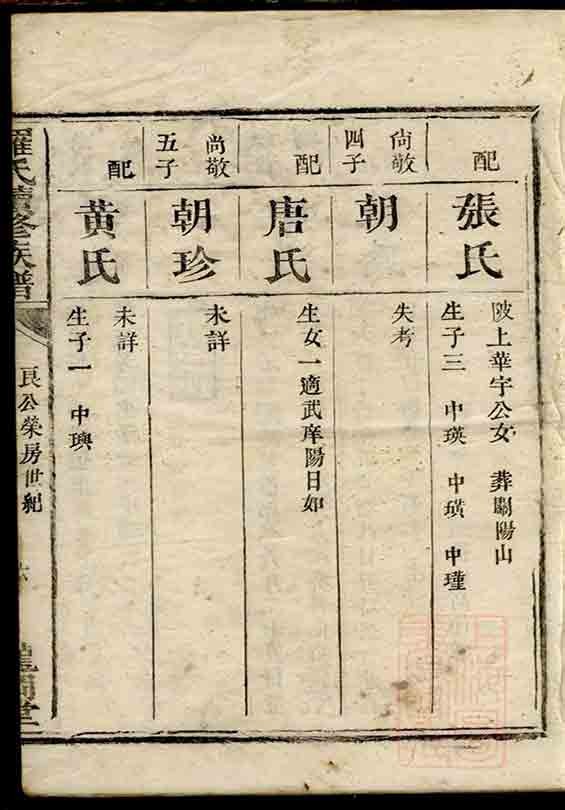 配
張氏
陂上華宇公女 葬關陽山
生子三 中瑛 中璜 中瑾
尙敬
四子
朝
失考
配
唐氏
生女一適武庠陽日如
尚敬
五子
朝珍
未詳
配
黄氏
未詳
生子一 中璵
羅氏續修族譜
良公榮房世紀